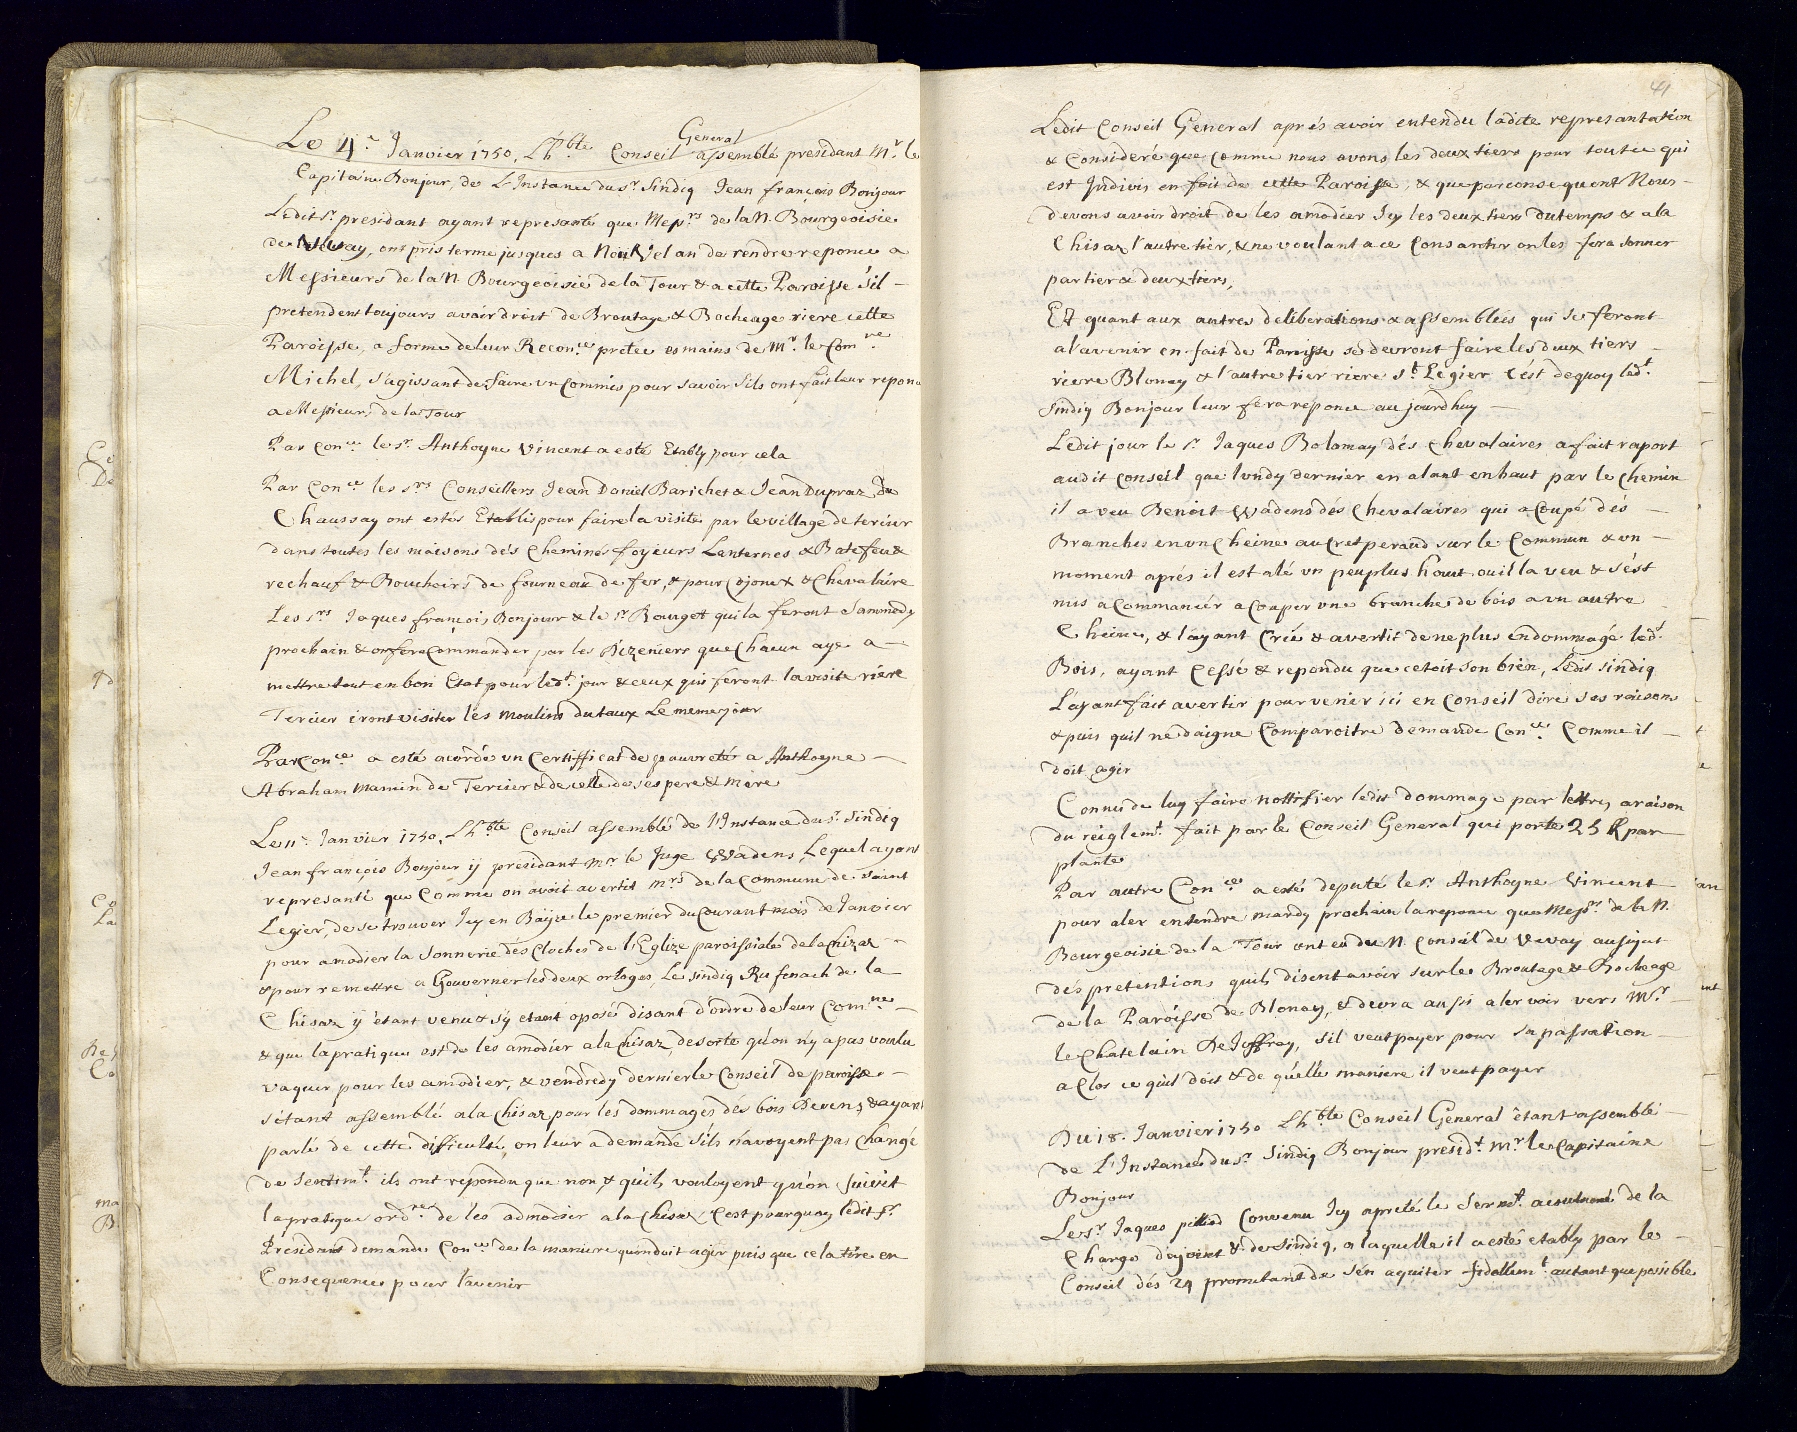 Le 4.e Janvier 1750, Lh.ble Conseil General assemblé presidant Mr. le
Capitaine Bonjour, de L'Instance du sr. Sindiq Jean françois Bonjour
Ledit sr. presidant ayant representé que Messrs. de la N. Bourgeoisie
de Vevay, ont pris terme jusques a Nouvel an de rendre reponce a
Messieurs de la N. Bourgeoisie de la Tour & a cette Paroisse s'il
pretendent toujours avoir droit de Broutage & Bocheage riere cette
Paroisse, a forme de leur Recon.ce pretée es mains de Mr. le Com.re
Michel, s'agissant de faire un Commis pour savoir s'ils ont fait leur repon
a Messieurs de la Tour
Par Con.ce le sr. Anthoyne Vincent a esté Etably pour cela
Par Con.ce les srs. Conseillers Jean Daniel Barichet & Jean Dupraz Du
Chaussay ont estés Etablis pour faire la visite par le village de terieur
dans toutes les maisons dés Cheminés foyeurs Lanternes & Batefeu &
rechauf & Bouchoirs de fourneau de fer, & pour Cojonex & Chevalaire
Les srs. Jaques françois Bonjour & le sr. Rouget qui la feront Sammedy
prochain & on fera Commander par les Dizeniers que Chacun aye a
mettre tout en bon Etat pour led.t jour & ceux qui feront la visite riére
Tercier iront visiter les moulins du taux Le meme jour
Par Con.ce a esté acordé un Certifficat de pauvreté a Anthoyne
Abraham Mamin de Tercier & de celle de ses pere & mere
Le 11.e Janvier 1750, Lh.ble Conseil assemblé de l'Instance du sr. Sindiq
Jean françois Bonjour ÿ presidant Mr. le Juge Wadens, Lequel ayant
representé que Comme on avoit avertis Mrs. de la Commune de Saint
Legier, de se trouver Icy en Baÿe le premier du Courant mois de Janvier
pour amodier la Sonnerie dés Cloches de l'Eglize paroissiale de la Chizaz
& pour remettre a Gouverner les deux orloges, Le Sindiq Rufenach de la
Chisaz ÿ étant venu & s'ÿ etant oposé disant d'ordre de leur Com.ne
& que la pratique est de les amodier a la Chisaz, desorte qu'on n'y a pas voulu
vaquer pour les amodier, & vendredy dernier le Conseil de paroisse
s'étant assemblé a la Chisaz pour les dommages dés bois Devens, & ayant
parlé de cette difficulté, on leur a demandé s'ils n'avoyent pas Changé
de Sentim.t ils ont repondu que non, & qu'ils vouloyent qu'on Suivit
la pratique ord.re de les admodier a la Chisaz, C'est pourquoy ledit sr.
President demande Con.ce de la maniere qu'on doit agir puis que cela tire en
Consequence pour l'avenir
41
Ledit Conseil General aprés avoir entendu ladite representation
& Consideré que Comme nous avons les deux tiers pour tout ce qui
est Indivis en fait de cette Paroisse, & que par consequent Nous
devons avoir droit de les amodier Icy les deux tiers du temps & a la
Chisaz l'autre tier, & ne voulant a ce Consantir on les fera Sonner
par tier & deux tiers,
Et quant aux autres deliberations & assemblées qui se feront
a l'avenir en fait de Paroisse se devront faire les deux tiers
riere Blonay & l'autre tier riere S.t Legier C'est dequoy led.t
Sindiq Bonjour leur fera reponce aujourd'huy
Ledit jour le sr. Jaques Bolomay dés Chevalaires a fait raport
audit Conseil que lundy dernier en alant en haut par le Chemin
il a veu Benoit Wadens dés Chevalaires qui a Coupé dés
Branches en un Cheine au Cret peraud sur le Commun & un
moment aprés il est alé un peu plus haut, ou il la veu & s'est
mis a Commancér a Couper une branche de bois a un autre
Cheine, & l'ayant Crié & avertit de ne plus endommagé led.t
Bois, ayant Cessé & repondu que cetoit son bien, Ledit Sindiq
L'ayant fait avertir pour venir ici en Conseil dire ses raisons
& puis qu'il ne daigne Comparoitre demande Con.ce Comme il
doit agir
Connu de luy faire nottifier ledit dommage par lettres a raison
du réiglem.t fait par le Conseil General qui porte 25 ß par
plante
Par autre Con.ce a esté deputé le sr. Anthoyne Vincent
pour aler entendre mardy prochain la reponce que Messrs. de la N.
Bourgeoisie de la Tour ont eu du N. Conseil de Vevay au sujet
dés pretentions quils disent avoir sur le Broutage & Bocheage
de la Paroisse de Blonay, & devra aussi aler voir vers Mr.
le Chatelain De Joffrey, s'il veut payer pour sa passation
a Clos ce qu'il doit & de quelle maniere il veut payer
Du 18. Janvier 1750 Lh.ble Conseil General étant assemblé
de L'Instance du sr. Sindiq Bonjour presid.t Mr. le Capitaine
Bonjour
Le sr. Jaques pilliod Convenu Icy a preté le Serm.t de la
Charge d'ajoint & de Sindiq, a laquelle il a esté etably par le
Conseil dés 24 promettant de s'én aquiter fidellem.t autant que possible